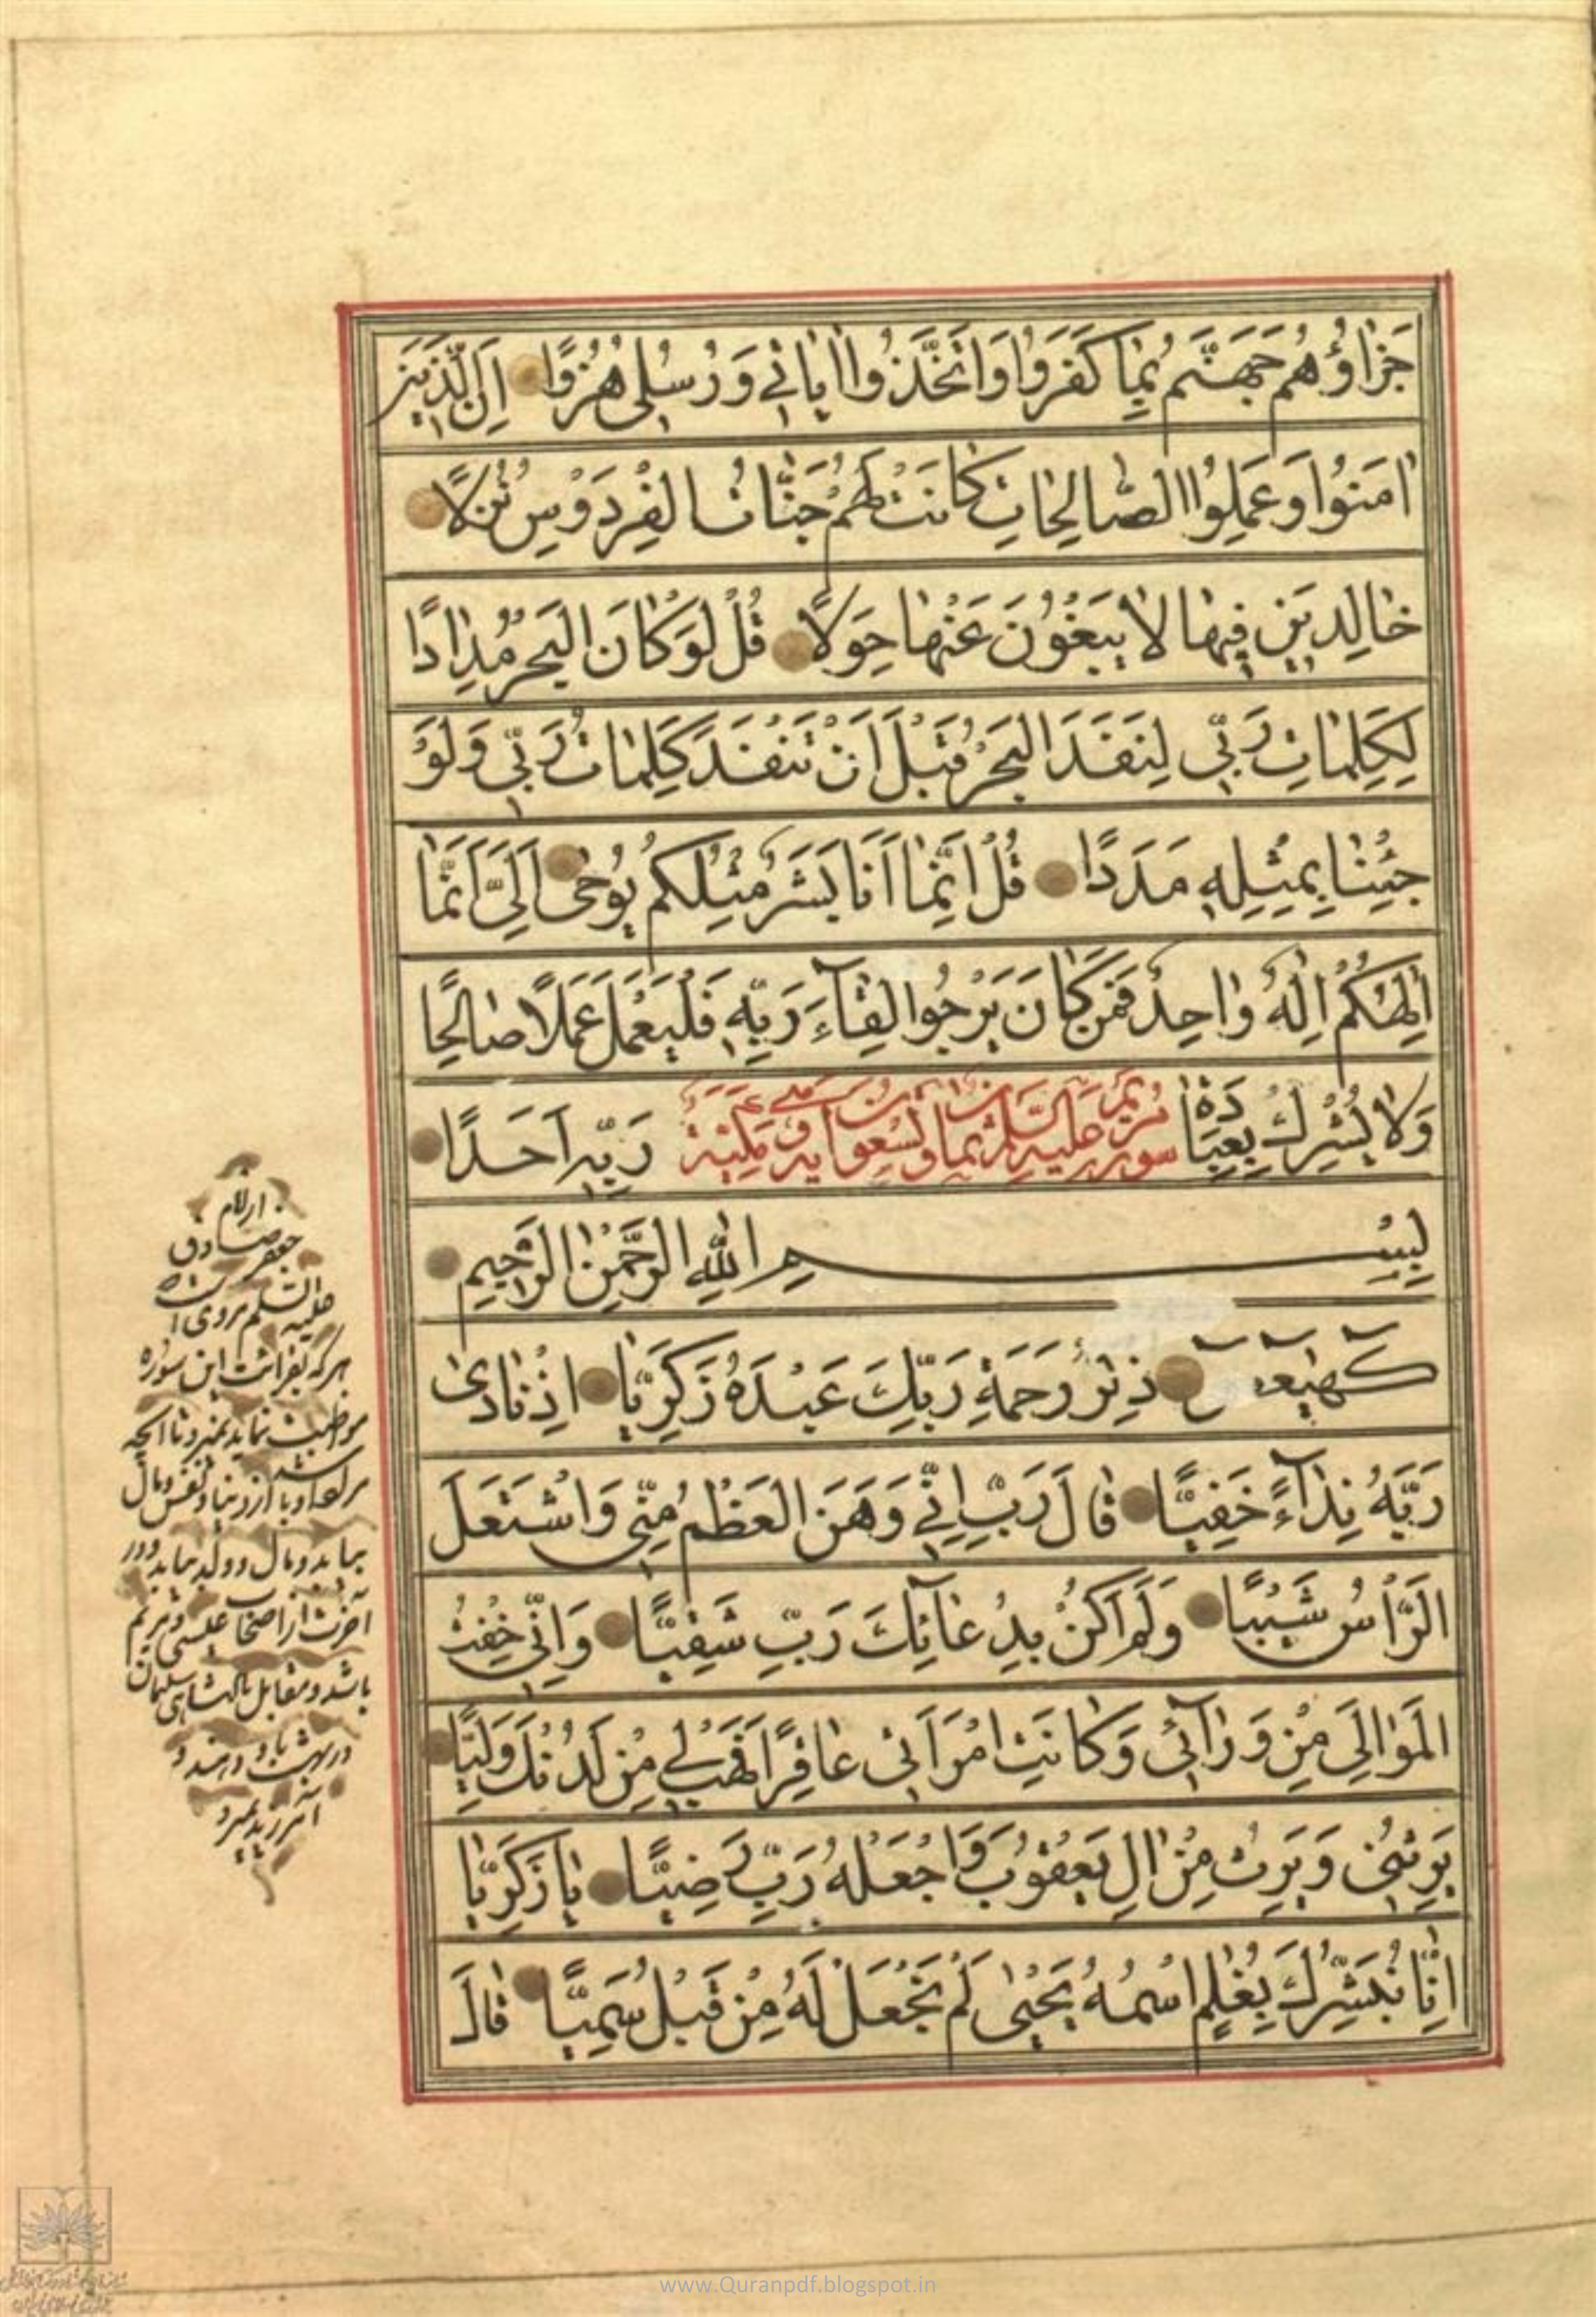 جَزٰاؤُهُمْ جَهَنَّمُ بِمٰا كَفَرُوا وَاتَّخَذُوا اٰيٰاتِي وَرُسُلِي هُزُوًا اِنَّ الَّذِينَ
اٰمَنُوا وَعَمِلُوا الصّٰالِحٰاتِ كٰانَتْ لَهُمْ جَنّٰاتُ الْفِرْدَوْسِ نُزُلًا
خٰالِدِينَ فِيهٰا لٰا يَبْغُونَ عَنْهٰا حِوَلًا قُلْ لَوْ كٰانَ الْبَحْرُ مِدٰادًا
لِكَلِمٰاتِ رَبِّي لَنَفِدَ الْبَحْرُ قَبْلَ اَنْ تَنْفَدَ كَلِمٰاتُ رَبِّي وَلَوْ
جِئْنٰا بِمِثْلِهِ مَدَدًا قُلْ اِنَّمٰا اَنَا بَشَرٌ مِثْلُكُمْ يُوحٰى اِلَيَّ اَنَّمٰا
اِلٰهُكُمْ اِلٰهٌ وٰاحِدٌ فَمَنْ كٰانَ يَرْجُوا لِقٰآءَ رَبِّهِ فَلْيَعْمَلْ عَمَلًا صٰالِحًا
وَلٰا يُشْرِكْ بِعِبٰادَةِ رَبِّهِ اَحَدًا
سورة مريم عليه السلم ثمان وتسعون اية وهي مكية
بِسْمِ اللّٰهِ الرَّحْمٰنِ الرَّحِيمِ
كٓهٰيٰعٓصٓ ذِكْرُ رَحْمَةِ رَبِّكَ عَبْدَهُ زَكَرِيّٰا اِذْ نٰادىٰ
رَبَّهُ نِدٰآءً خَفِيًّا قٰالَ رَبِّ اِنِّي وَهَنَ الْعَظْمُ مِنِّي وَاشْتَعَلَ
الرَّأْسُ شَيْبًا وَلَمْ اَكُنْ بِدُعٰآئِكَ رَبِّ شَقِيًّا وَاِنِّي خِفْتُ
الْمَوٰالِيَ مِنْ وَرٰآئِي وَكٰانَتِ امْرَاَتِي عٰاقِرًا فَهَبْ لِي مِنْ لَدُنْكَ وَلِيًّا
يَرِثُنِي وَيَرِثُ مِنْ اٰلِ يَعْقُوبَ وَاجْعَلْهُ رَبِّ رَضِيًّا يٰا زَكَرِيّٰا
اِنّٰا نُبَشِّرُكَ بِغُلٰمٍ اسْمُهُ يَحْيٰى لَمْ نَجْعَلْ لَهُ مِنْ قَبْلُ سَمِيًّا قٰالَ
از امام
جعفر صادق
عليه السلم مروى است
هركه بقرائت اين سوره
مواظبت نمايد نميرد تا آنچه
او باشد از دنيا و نفس و مال
بيابد و مال و ولد بيابد و در
آخرت از اصحاب عيسى مريم
باشد و مقابل پادشاهى سليمان
در بهشت باو دهند و
www.Quranpdf.blogspot.in